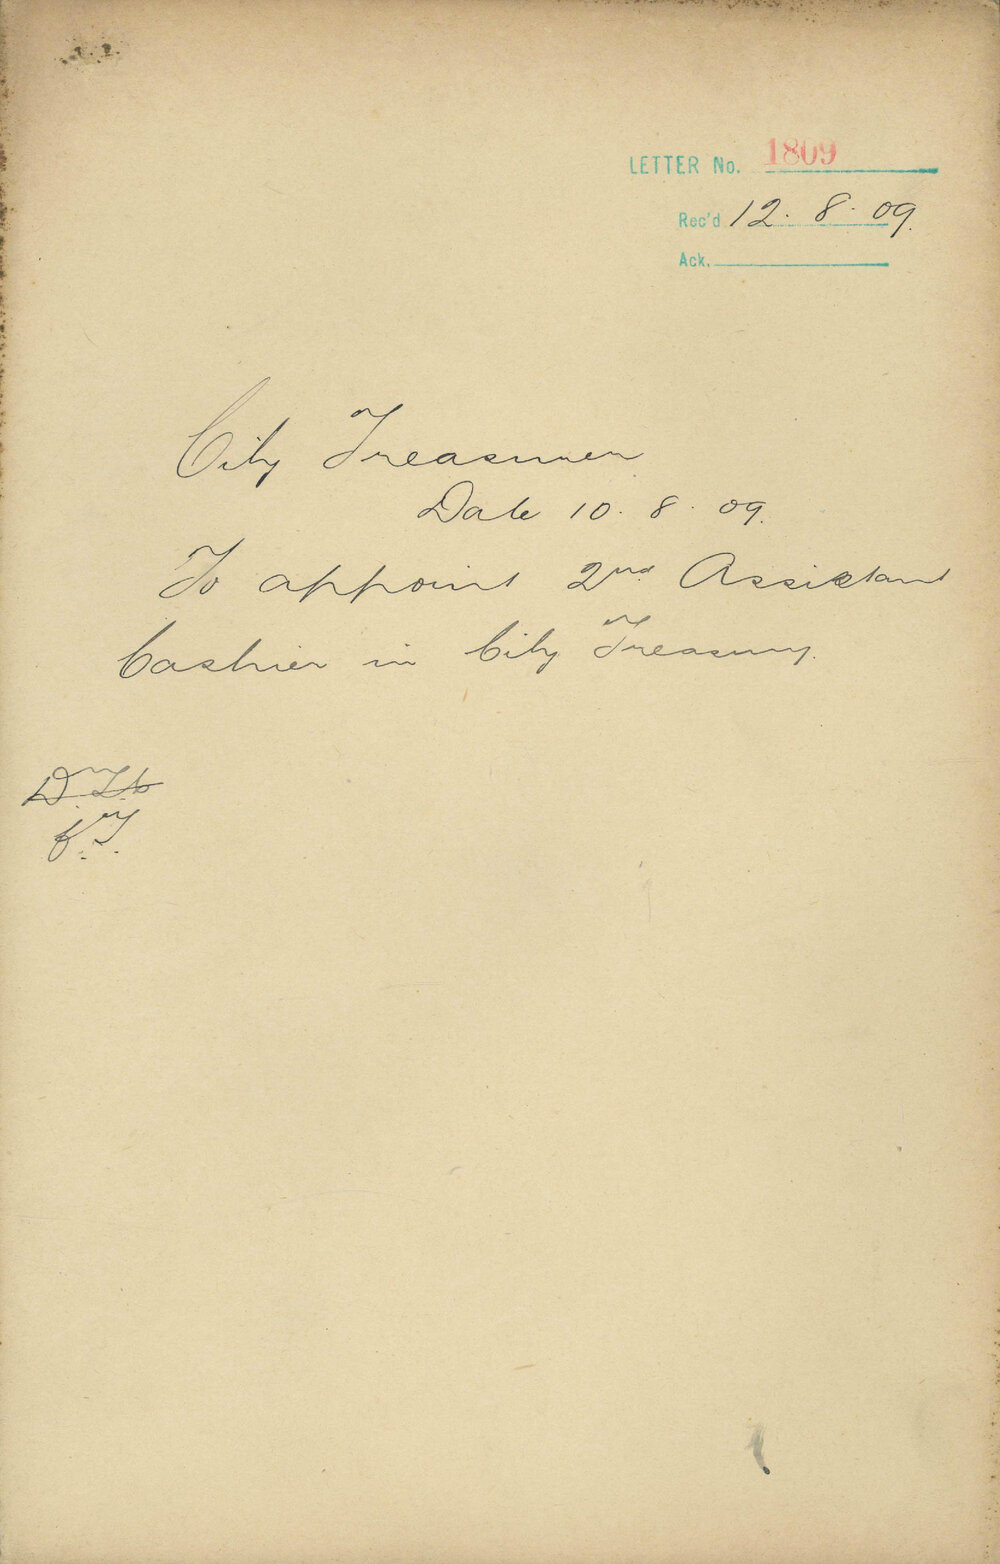 LETTER No. 1809
Rec'd 12. 8. 09.
Ack.
City Treasurer
Date 10. 8. 09.
To appoint 2nd Assistant
Cashier in City Treasury.